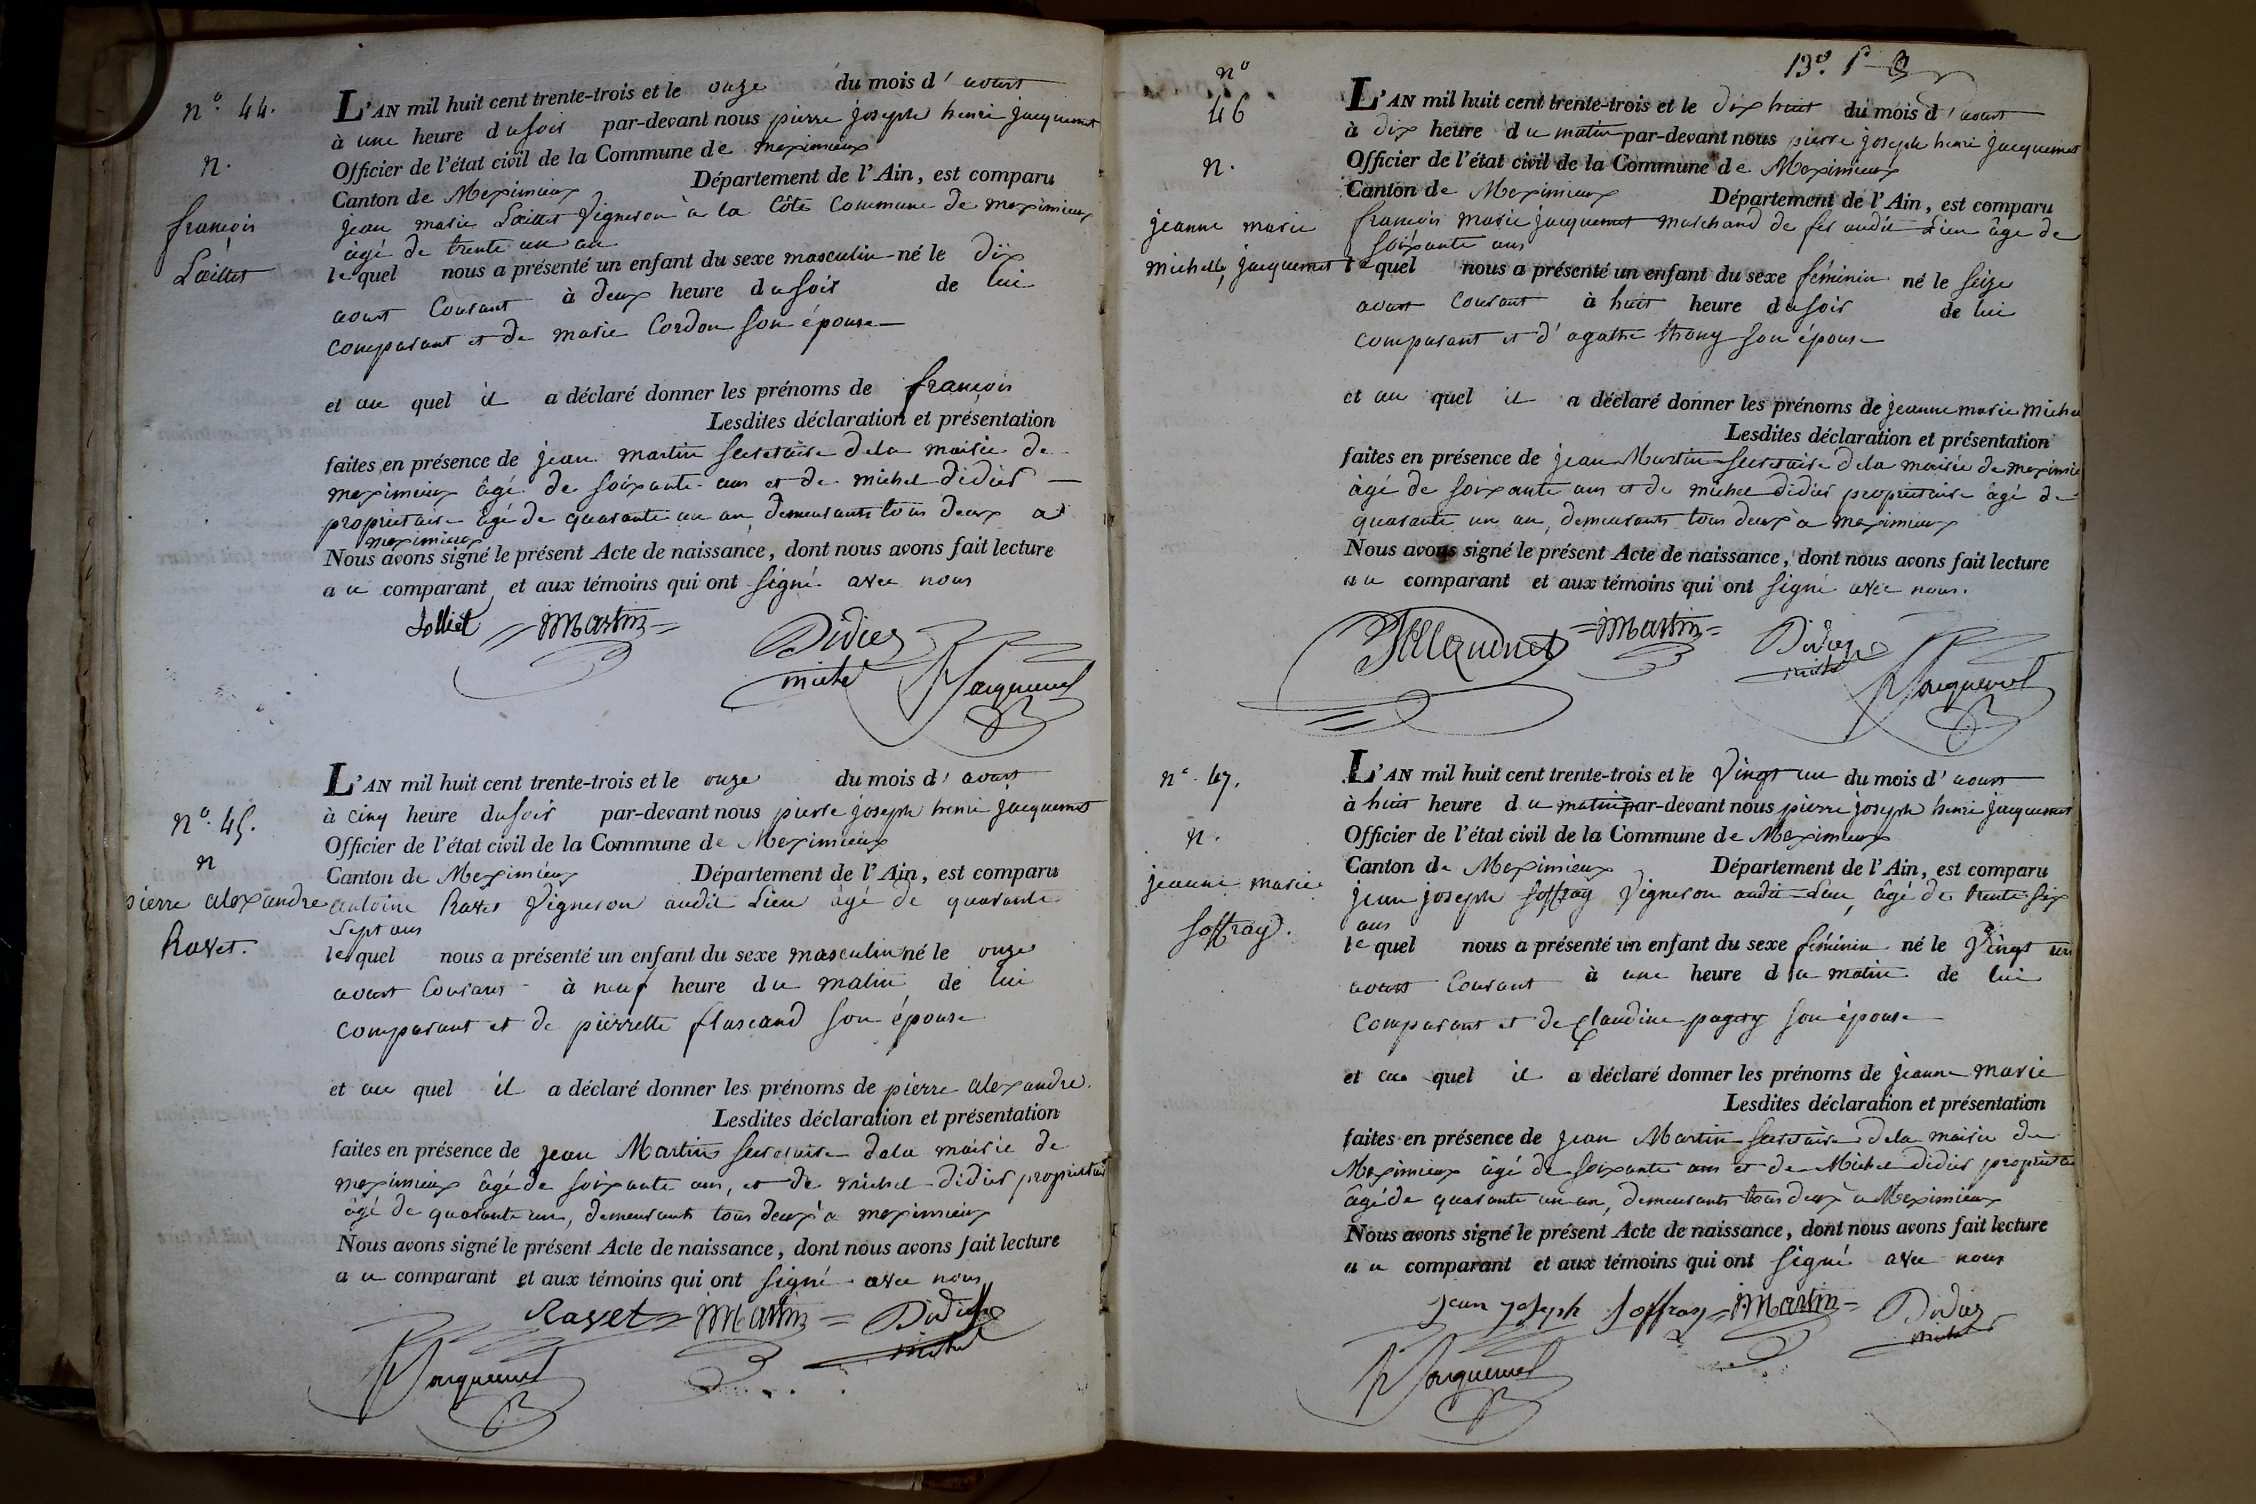 n.° 44.
n.
françois
Lœillet
L'AN mil huit cent trente-trois et le onze du mois d' aoust
à une heure du soir par-devant nous pierre joseph henri jacquemet
Officier de l'état civil de la Commune de meximieux
Canton de Meximieux Département de l'Ain, est comparu
jean marie Lœillet Vigneron à la Côte Commune de meximieux
âgé de trente un an
lequel nous a présenté un enfant du sexe masculin né le dix
aoust Courant à deux heure du soir de lui
comparant et de marie Cordon son épouse
et au quel il a déclaré donner les prénoms de françois
Lesdites déclaration et présentation
faites en présence de jean martin secretaire dela mairie de
meximieux âgé de soixante ans et de michel didier
propriétaire âgé de quarante un an, demeurants tous deux a
meximieux
Nous avons signé le présent Acte de naissance, dont nous avons fait lecture
au comparant et aux témoins qui ont signé avec nous
Lolliet Martin Didier
michel Jacquemet
n.° 45.
n
pierre alexandre
Ravet.
L'AN mil huit cent trente-trois et le onze du mois d' aoust
à cinq heure du soir par-devant nous pierre joseph henri jacquemet
Officier de l'état civil de la Commune de Meximieux
Canton de Meximieux Département de l'Ain, est comparu
antoine Ravet Vigneron audit Lieu âgé de quarante
sept ans
lequel nous a présenté un enfant du sexe masculin né le onze
aoust Courant à neuf heure du matin de lui
comparant et de pierrette flascand son épouse
et au quel il a déclaré donner les prénoms de pierre alexandre.
Lesdites déclaration et présentation
faites en présence de jean Martin secretaire dela mairie de
meximieux âgé de soixante ans, et de michel didier propriétaire
âgé de quarante un, demeurants tous deux a meximieux
Nous avons signé le présent Acte de naissance, dont nous avons fait lecture
au comparant et aux témoins qui ont signé avec nous
Ravet Martin Didier
michel
Jacquemet
13.e
n°
46
n.
jeanne marie
michelle jacquemet
L'AN mil huit cent trente-trois et le dix huit du mois d' aoust
à dix heure du matin par-devant nous pierre joseph henri jacquemet
Officier de l'état civil de la Commune de Meximieux
Canton de Meximieux Département de l'Ain, est comparu
françois marie jacquemet marchand de fer audit Lieu âgé de
soixante ans
lequel nous a présenté un enfant du sexe féminin né le seize
aoust courant à huit heure du soir de lui
comparant et d'agathe thony son épouse
et au quel il a déclaré donner les prénoms de jeanne marie miche
Lesdites déclaration et présentation
faites en présence de jean Martin secretaire dela mairie de meximie
âgé de soixante ans et de michel didier propriétaire âgé de
quarante un an, demeurants tous deux a meximieux
Nous avons signé le présent Acte de naissance, dont nous avons fait lecture
au comparant et aux témoins qui ont signé avec nous.
Jacquemet Martin Didier
michel Jacquemet
n.° 47.
n.
jeanne marie
soffray.
L'AN mil huit cent trente-trois et le Vingt un du mois d' aoust
à huit heure du matin par-devant nous pierre joseph henri jacquemet
Officier de l'état civil de la Commune de Meximieux
Canton de Meximieux Département de l'Ain, est comparu
jean joseph soffray Vigneron audit Lieu, âgé de trente six
ans
lequel nous a présenté un enfant du sexe féminin né le Vingt un
aoust Courant à une heure du matin de lui
comparant et de Claudine pagny son épouse
et au quel il a déclaré donner les prénoms de jeanne marie
Lesdites déclaration et présentation
faites en présence de jean Martin secretaire dela mairie de
Meximieux âgé de soixante ans et de Michel didier propriétai
âgé de quarante un an, demeurants tous deux a Meximieux
Nous avons signé le présent Acte de naissance, dont nous avons fait lecture
au comparant et aux témoins qui ont signé avec nous
jean joseph soffray Martin Didier
michel
Jacquemet